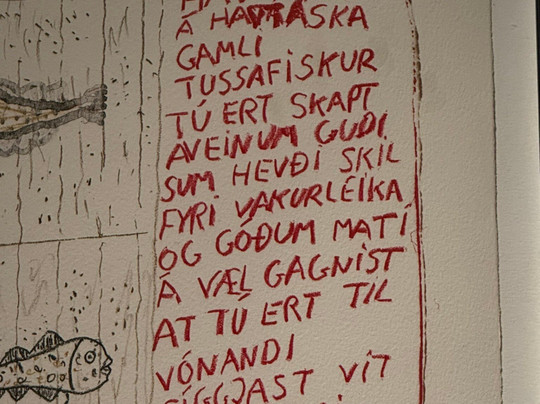 Á HAVTASKA
GAMLI
TUSSAFISKUR
TÚ ERT SKAPT
AVEINUM GUÐI
SUM HEVÐI SKIL
FYRI VAKURLEIKA
OG GÓÐUM MATI
Á VÆL GAGNIST
AT TÚ ERT TIL
VÓNANDI
SÍGGJAST VIT